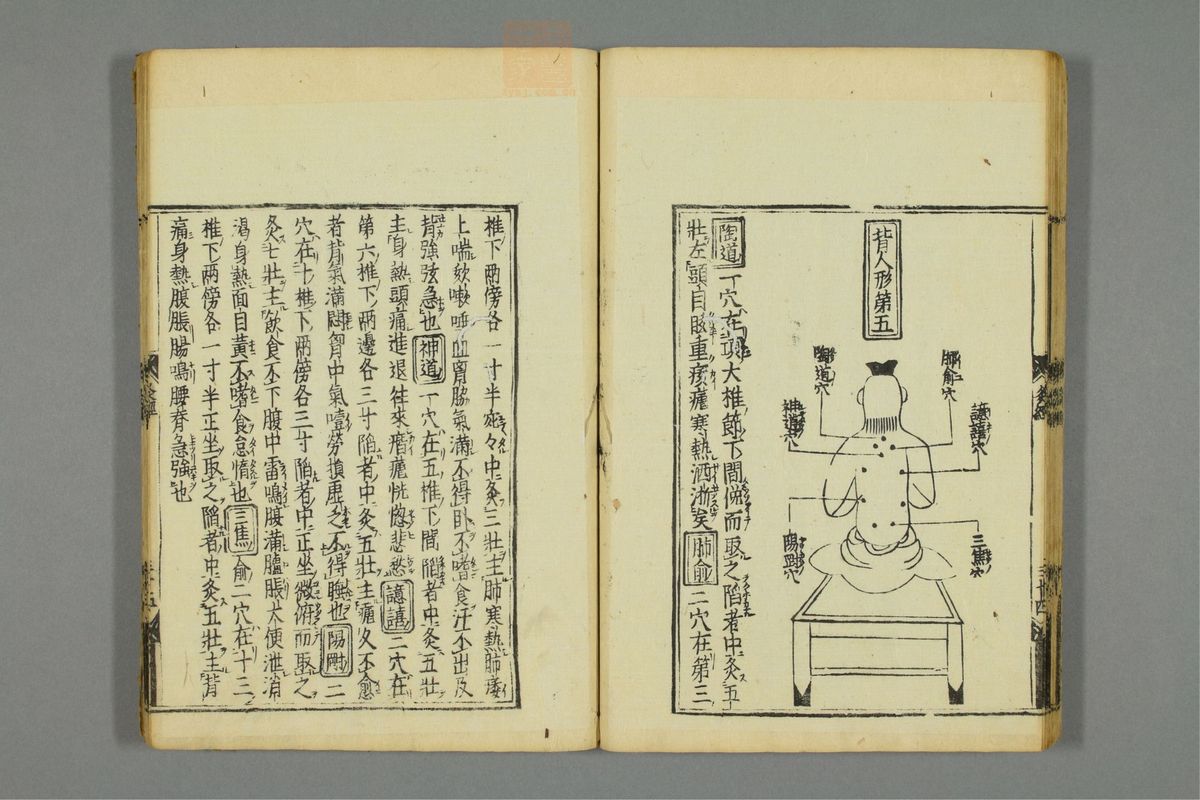 背人形第五
肺俞穴
譩譆穴
三焦穴
陶道穴
神道穴
陽剛穴
陶道一穴在項大椎節下間俛而取之陷者中灸五
壯主頭目眩重痎瘧寒熱洒淅矣肺俞二穴在第三
灸經
椎下兩傍各一寸半宛々中灸三壯主肺寒熱肺痿
上喘欬嗽唾血胷脇氣滿不得卧不嗜食汗不出及
背強弦急也神道一穴在五椎下間陷者中灸五壯
主身熱頭痛進退往來痎瘧恍惚悲愁譩譆二穴在
第六椎下兩邊各三寸陷者中灸五壯主瘧久不愈
者背氣滿悶胷中氣噎勞損虛乏不得睡也陽剛二
穴在十椎下兩傍各三寸陷者中正坐微俯而取之
灸七壯主飲食不下腹中雷鳴腹滿臚脹大便泄消
渴身熱面目黃不嗜食怠惰也三焦俞二穴在十三
椎下兩傍各一寸半正坐取之陷者中灸五壯主背
痛身熱腹脹腸鳴腰脊急強也
灸經